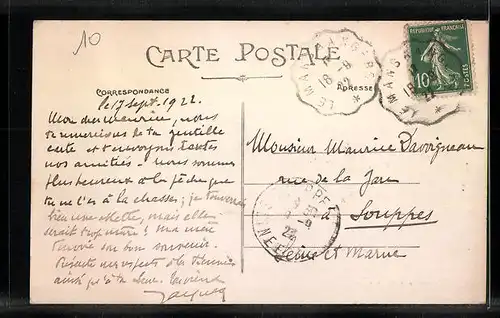 10
CARTE POSTALE
CORRESPONDANCE
ADRESSE
RÉPUBLIQUE FRANÇAISE
10
POSTES
LE MANS A ANGERS
18-9
22
LE MANS
18
le 17 Sept. 1922
Mon cher Maurice, nous
te remercions de ta gentille
carte et t'envoyons toutes
nos amitiés - nous sommes
plus heureux à la pêche que
tu ne l'es à la chasse; je
bien une alouette, mais elle
serait trop mûre! Ma
t'envoie son bon souvenir.
nos respects à ta
ainsi qu'à ta Sœur.
Jacques
Monsieur Maurice Davrigneau
rue de la Gare
Souppes
Seine et Marne